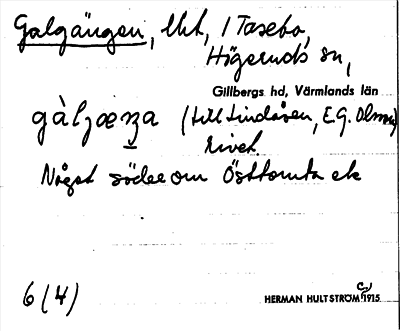 Galgängen, lht, 1 Taxebo,
Högeruds sn,
Gillbergs hd, Värmlands län
(till Lindåsen, E.G. Olsson)
rivet.
Något söder om Östtomta ek
6 (4)
HERMAN HULTSTRÖM 1915